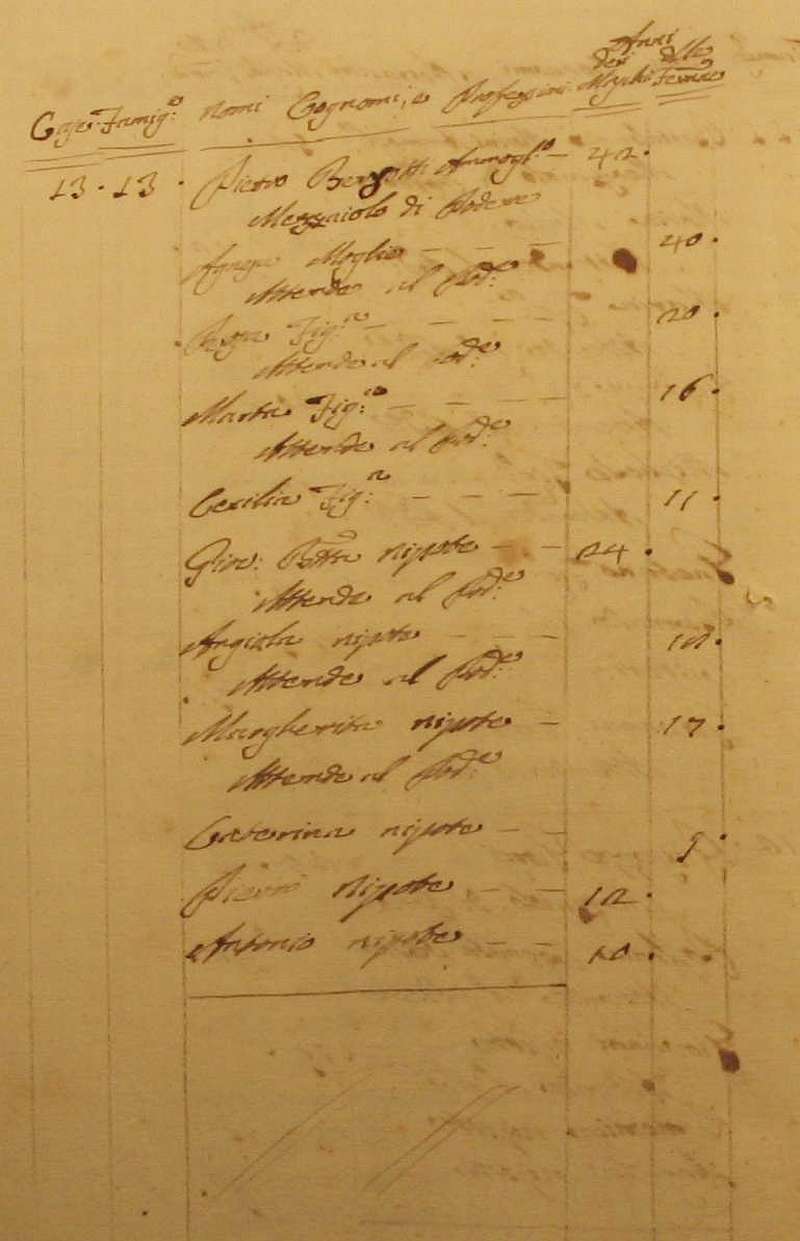 Anni
dei delle
Case Famig.e Nomi Cognomi, e Professioni Maschi Femine
13. 13. Pietro Ammogl.o — 42.
Mezzaiolo di Podere
Agnese Moglie — — — 40.
Attende al Pod.e
Rosa Fig.a — — — 20.
Attende al Pod.e
Marta Fig.a — — — 16.
Attende al Pod.e
Cecilia Fig.a — — — 11.
Gio: Batta nipote — — 24.
Attende al Pod.e
Angiola nipote — — —
Attende al Pod.e
Margherita nipote — 17.
Attende al Pod.e
Caterina nipote — — 9.
Pietro Nipote — — 12.
Antonio nipote — — 10.